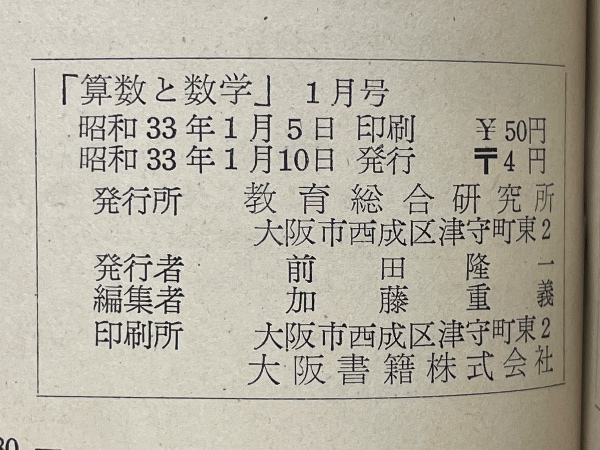 「算数と数学」 1月号
昭和33年1月5日 印刷 ¥50円
昭和33年1月10日 発行 〒4円
発行所 教育総合研究所
大阪市西成区津守町東2
発行者 前田隆一
編集者 加藤重義
印刷所 大阪市西成区津守町東2
大阪書籍株式会社